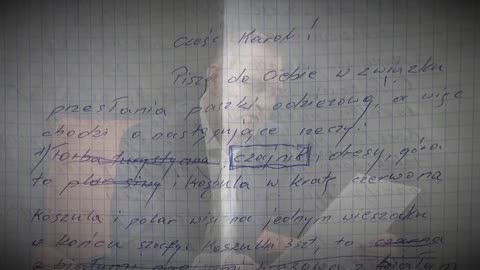 Cześć Karol!
Piszę do Ciebie w związku
przesłania paczki odzieżowej, a więc
chodzi o następujące rzeczy:
1) Torba turystyczna, czajnik, dresy, góra
to i koszula w kratę czerwona
Koszula i polar wisi na jednym wieszaku
w końcu szafy. Koszula 3szt, to czarna
z białym